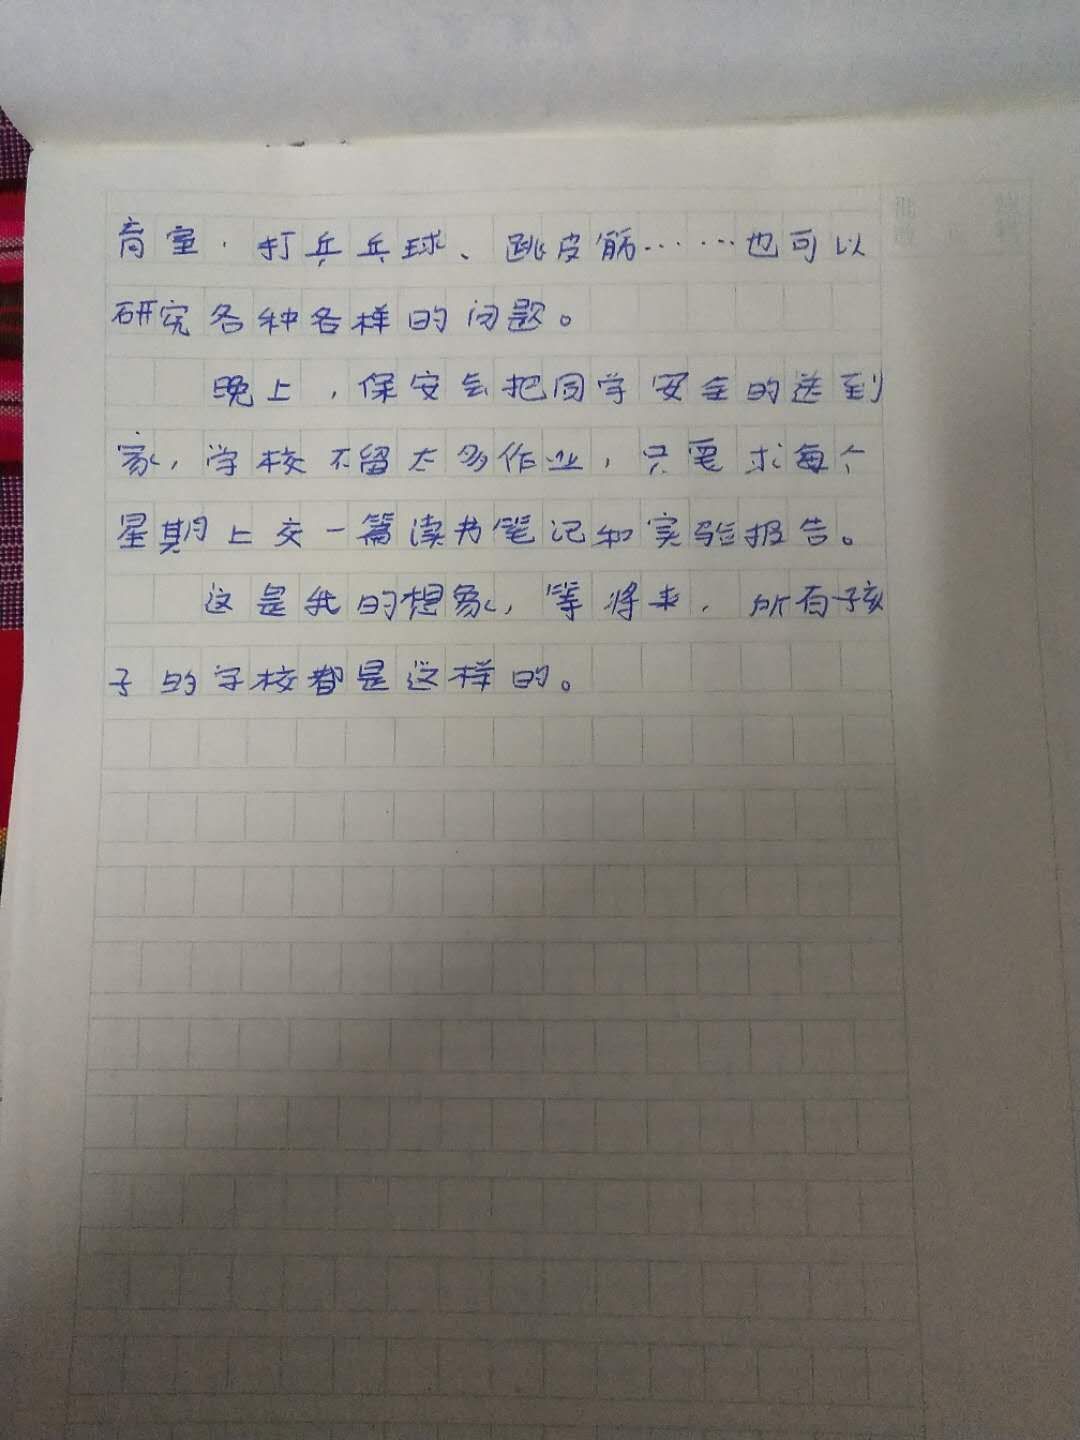 育室，打乒乓球、跳皮筋……也可以
研究各种各样的问题。
晚上，保安会把同学安全的送到
家，学校不留太多作业，只要求每个
星期上交一篇读书笔记和实验报告。
这是我的想象，等将来，所有孩
子的学校都是这样的。